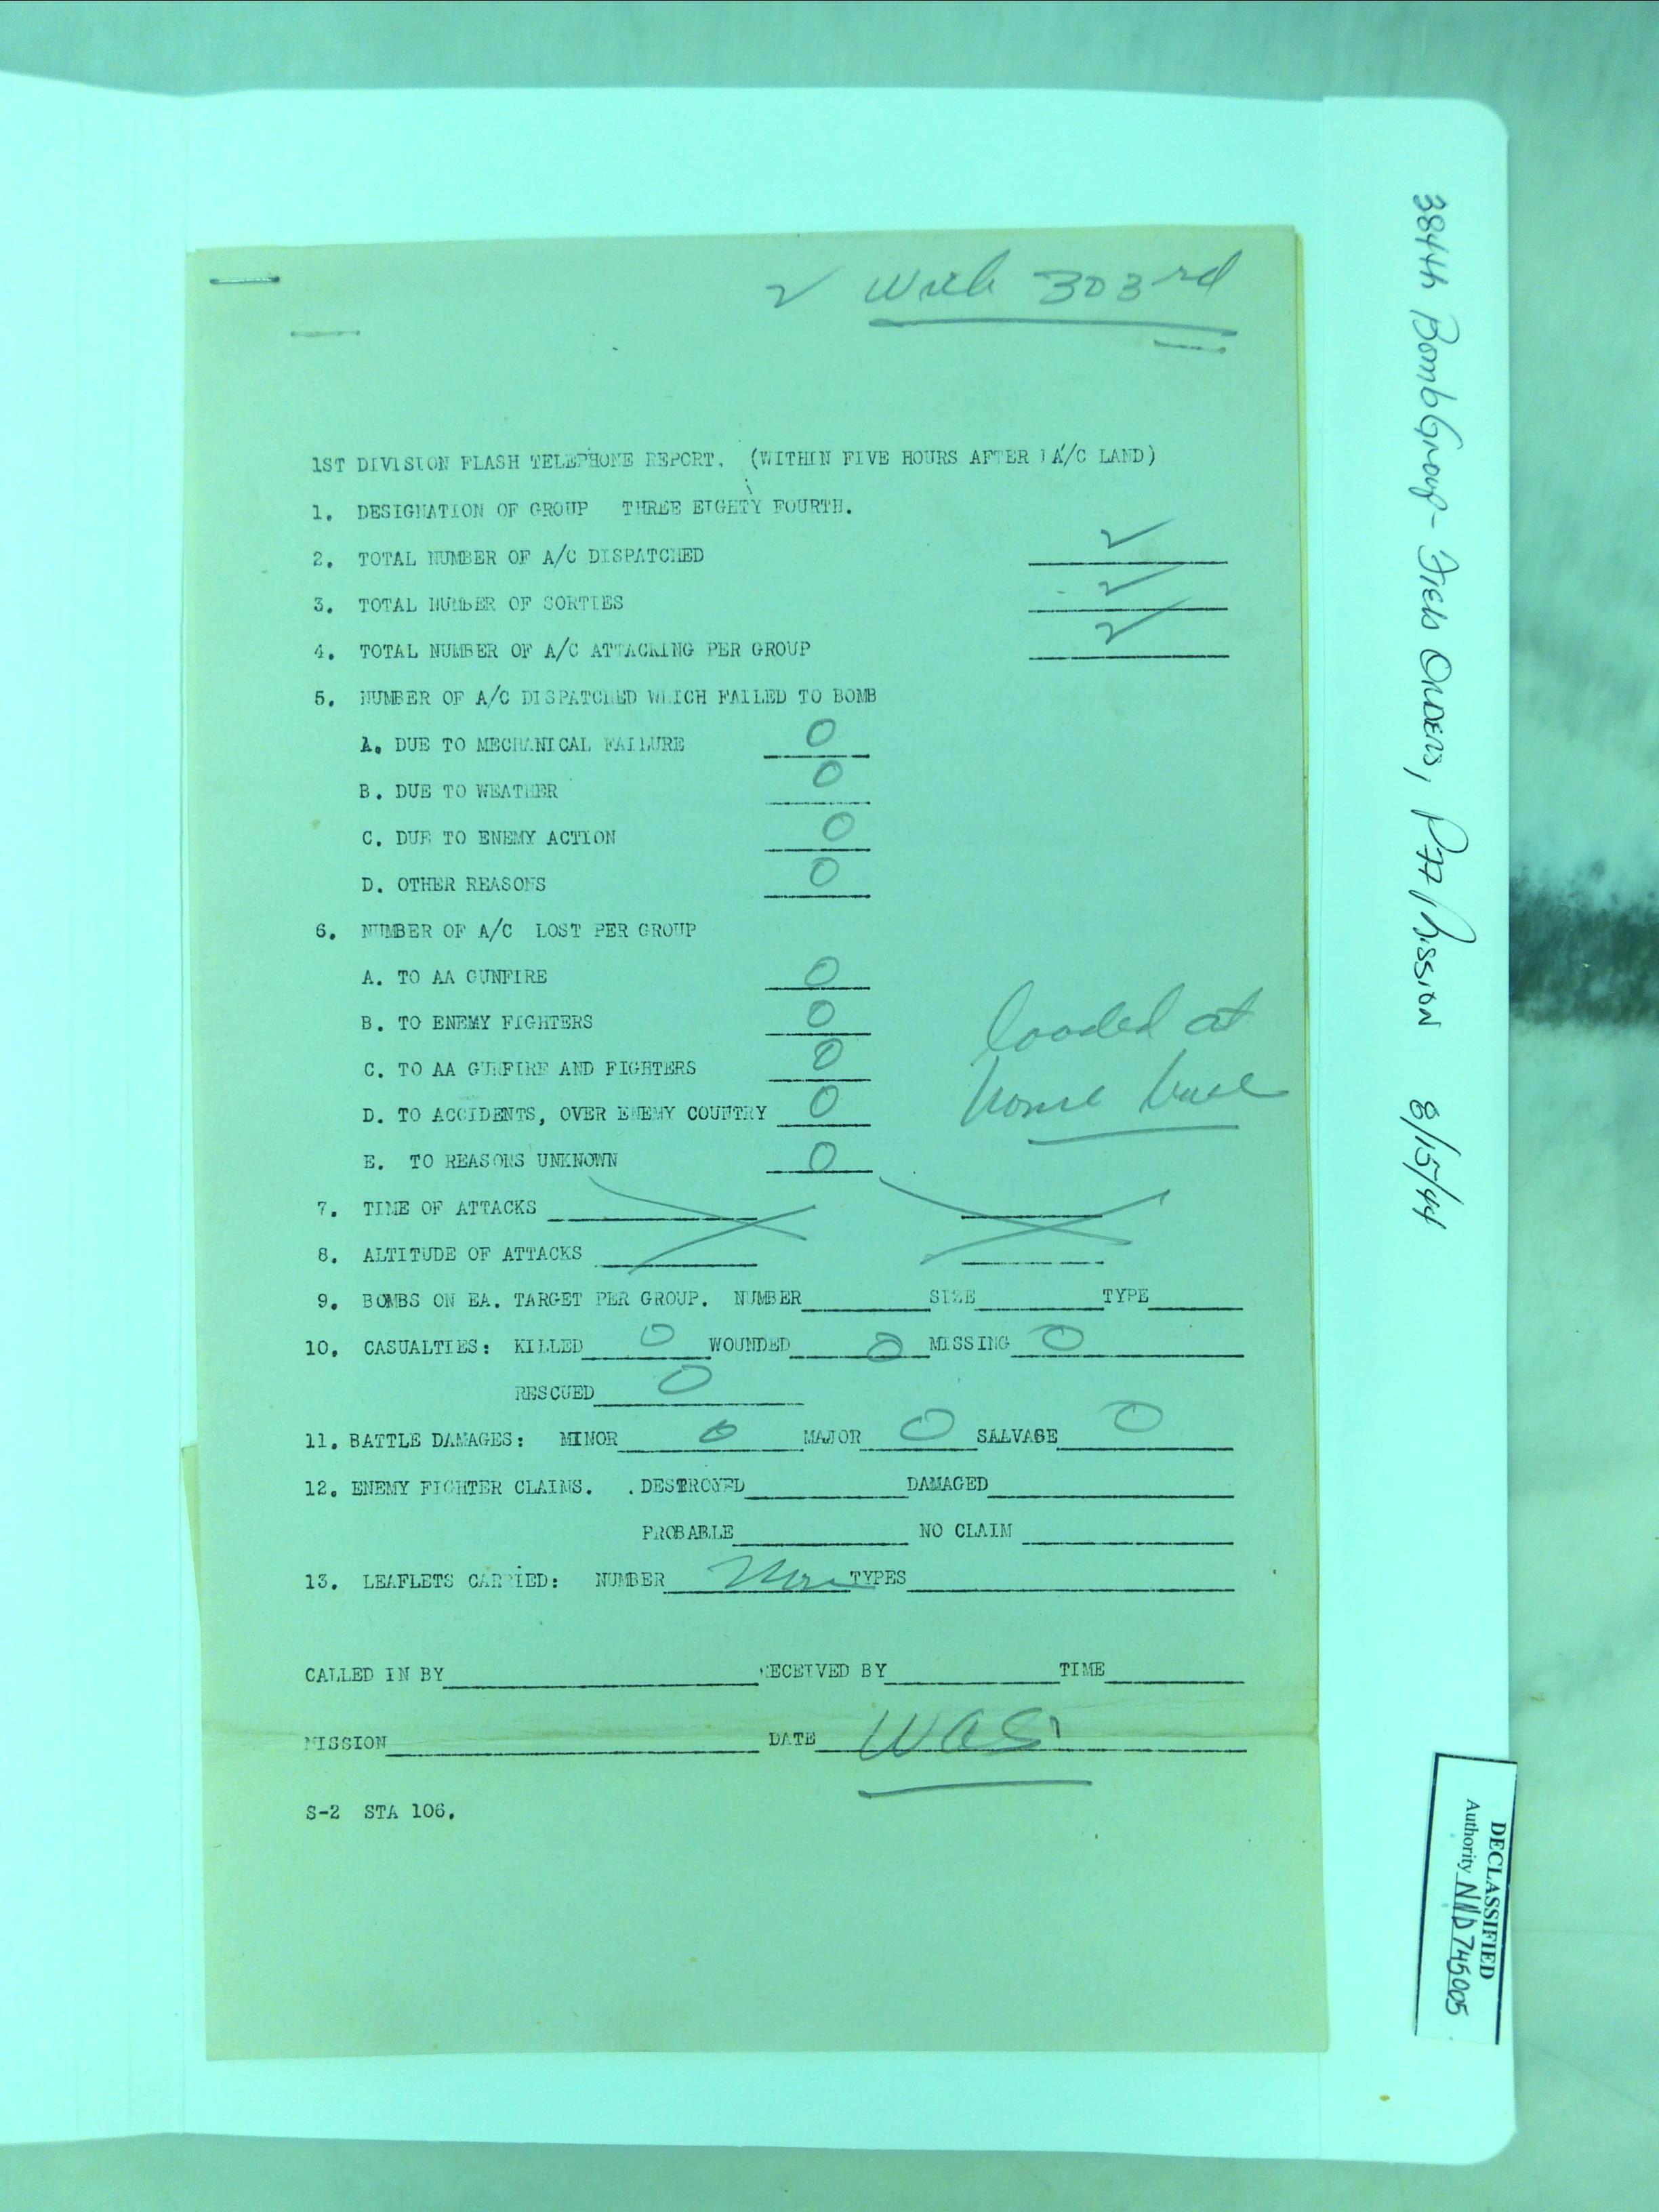 2 With 303rd
1ST DIVISION FLASH TELEPHONE REPORT. (WITHIN FIVE HOURS AFTER A/C LAND)
1. DESIGNATION OF GROUP THREE EIGHTY FOURTH.
2. TOTAL NUMBER OF A/C DISPATCHED 2
3. TOTAL NUMBER OF SORTIES 2
4. TOTAL NUMBER OF A/C ATTACKING PER GROUP 2
5. NUMBER OF A/C DISPATCHED WHICH FAILED TO BOMB
A. DUE TO MECHANICAL FAILURE 0
B. DUE TO WEATHER 0
C. DUE TO ENEMY ACTION 0
D. OTHER REASONS 0
6. NUMBER OF A/C LOST PER GROUP
A. TO AA GUNFIRE 0
B. TO ENEMY FIGHTERS 0
C. TO AA GUNFIRE AND FIGHTERS 0
D. TO ACCIDENTS, OVER ENEMY COUNTRY 0
E. TO REASONS UNKNOWN 0
loaded at
home base
7. TIME OF ATTACKS
8. ALTITUDE OF ATTACKS
9. BOMBS ON EA. TARGET PER GROUP. NUMBER SIZE TYPE
10. CASUALTIES: KILLED 0 WOUNDED 0 MISSING 0
RESCUED 0
11. BATTLE DAMAGES: MINOR 0 MAJOR 0 SALVAGE 0
12. ENEMY FIGHTER CLAIMS. . DESTROYED DAMAGED
PROBABLE NO CLAIM
13. LEAFLETS CARRIED: NUMBER None TYPES
CALLED IN BY RECEIVED BY TIME
MISSION DATE
S-2 STA 106.
384th Bomb Group - Field Orders, Mission 8/15/44
DECLASSIFIED
Authority NND 745005